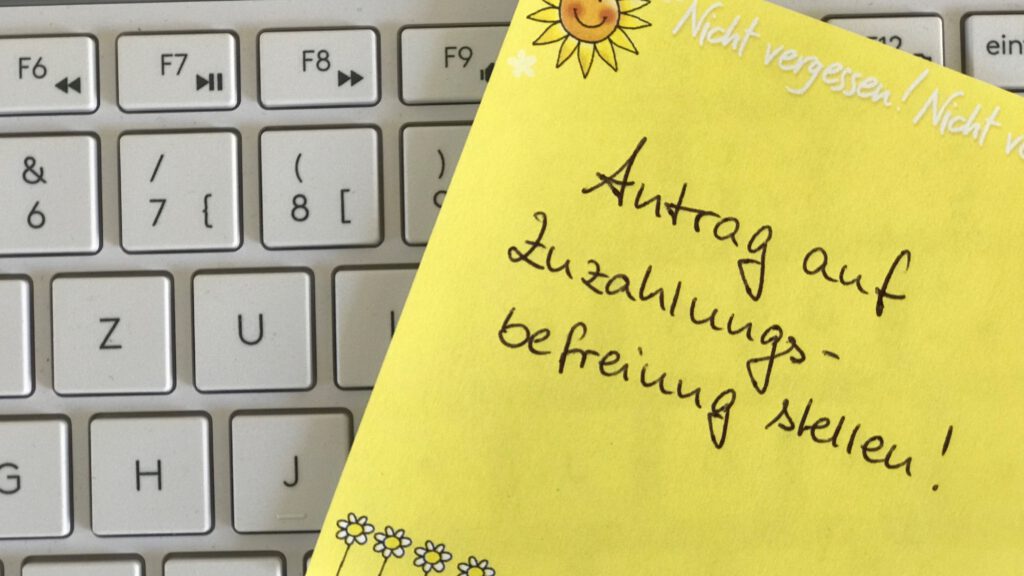 F6
F7
F8
F9
F12
einf
&
6
/
7 {
(
8 [
)
Z
U
G
H
J
Nicht vergessen! Nicht
Antrag auf
Zuzahlungs-
befreiung stellen!